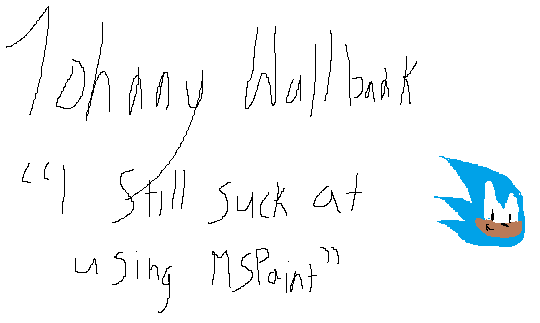 Johnny Wallbank
“I still suck at
using MSPaint”